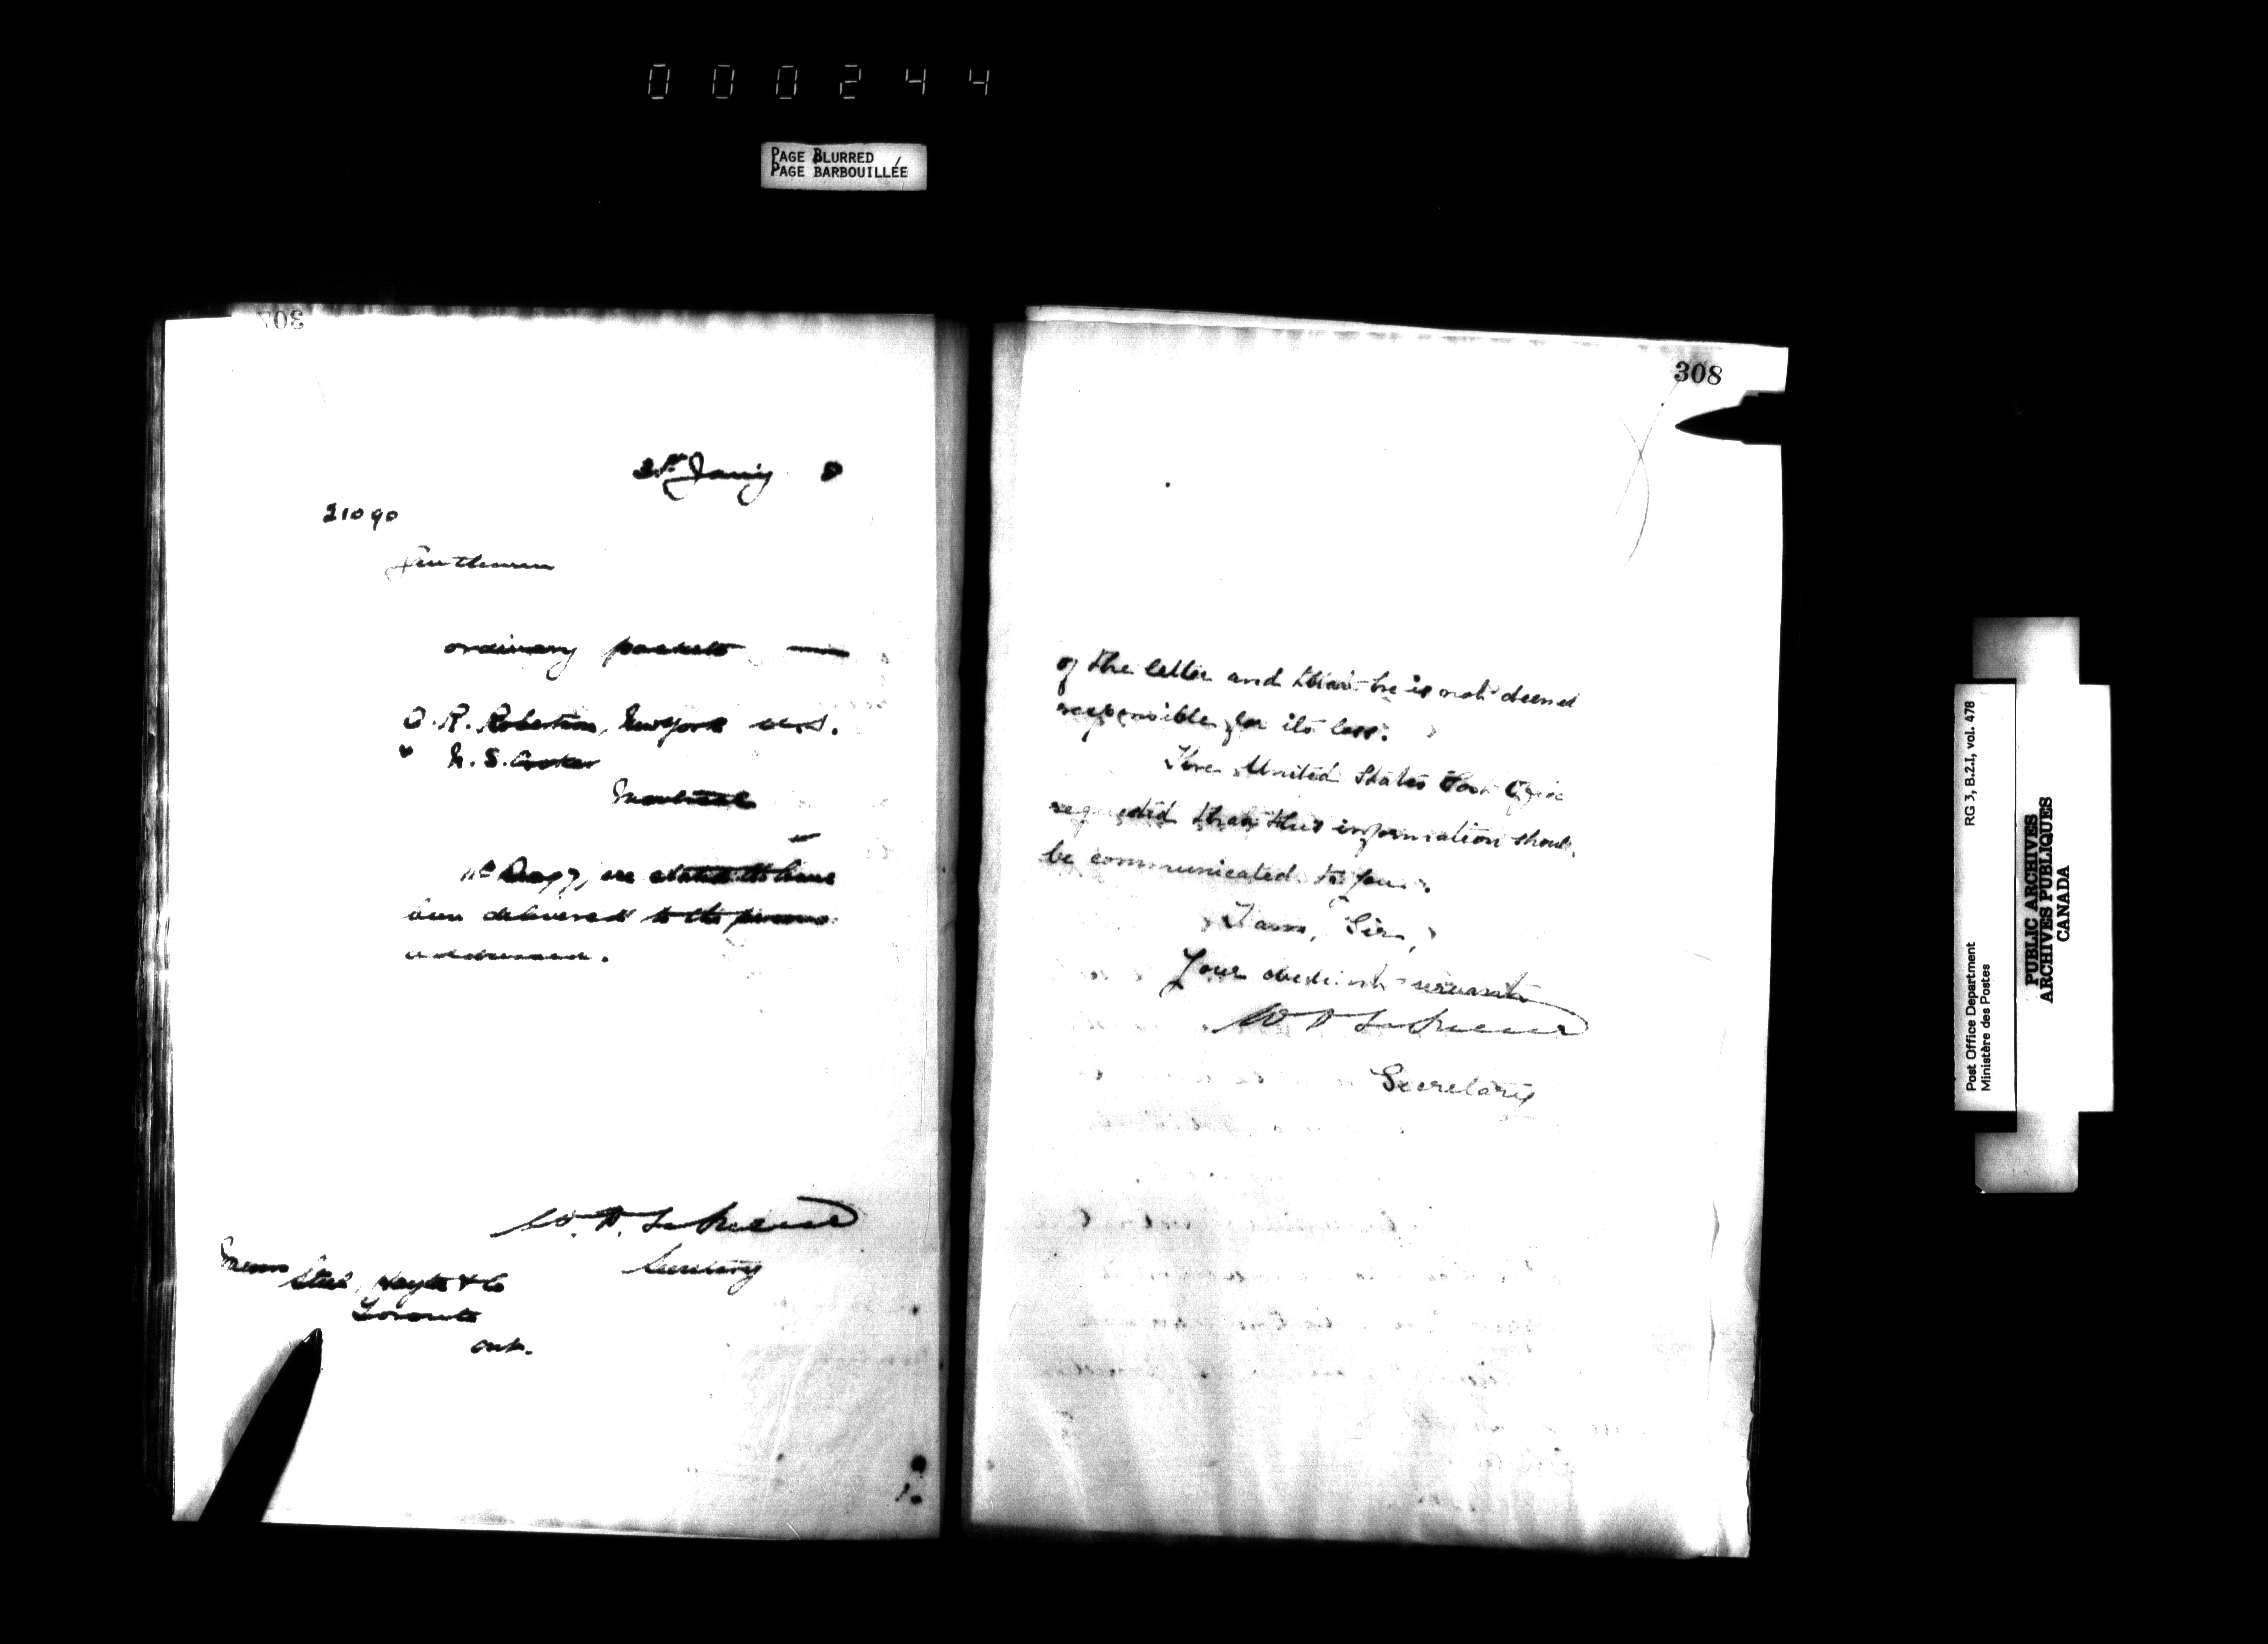 000244
PAGE BLURRED
PAGE BARBOUILLÉE
307
21st Jany 8
21090
Gentlemen
ordinary packets
O. R. Robertson, New York U.S.
Montreal
are stated to have
been delivered to the persons
addressed.
W. D. LeSueur
Secretary
Messrs
Steel, Hayter & Co
Toronto
Ont.
308
of the letter and that he is not deemed
responsible for its loss.
The United States Post Office
requested that this information should
be communicated to you.
I am, Sir,
Your obedient servant
W D LeSueur
Secretary
Post Office Department
Ministère des Postes
RG 3, B.2.I, vol. 478
PUBLIC ARCHIVES
ARCHIVES PUBLIQUES
CANADA